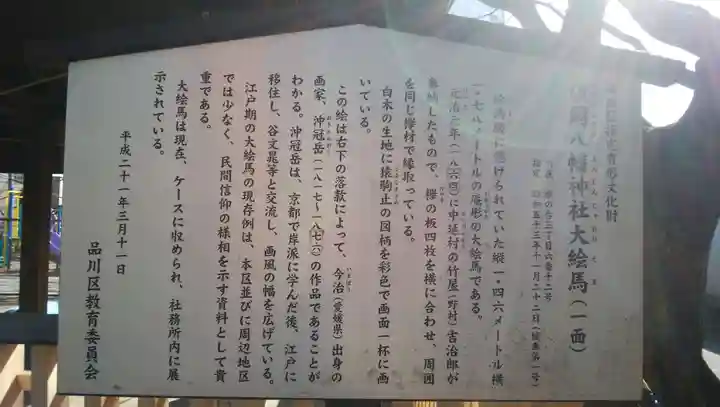 指定有形文化財
八幡神社大絵馬（一面）
旗の台三丁目六番十二号
昭和五十三年十一月二十二日
に懸げられていた縦一・四六メートル横
一・七八メートルの庵形の大絵馬である。
元治元年（一八六四）に中延村の竹屋（野村）吉治郎が
奉納したもので、欅の板四枚を横に合わせ、周囲
を同じ欅材で縁取っている。
白木の生地に猿駒止の図柄を彩色で画面一杯に画
いている。
この絵は右下の落款によって、今治（愛媛県）出身の
画家、沖冠岳（一八一七〜一八七六）の作品であることが
わかる。沖冠岳は、京都で岸派に学んだ後、江戸に
移住し、谷文晁等と交流し、画風の幅を広げている。
江戸期の大絵馬の現存例は、本区並びに周辺地区
では少なく、民間信仰の様相を示す資料として貴
重である。
大絵馬は現在、ケースに収められ、社務所内に展
示されている。
平成二十一年三月十一日
品川区教育委員会